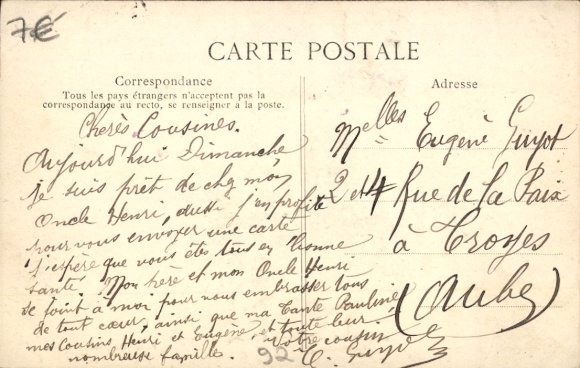 7€
CARTE POSTALE
Correspondance
Tous les pays étrangers n'acceptent pas la
correspondance au recto, se renseigner à la poste.
Adresse
Cherès Cousines.
Aujourd'hui Dimanche
je suis prèt de chez mon
Oncle Henri, aussi j'en profite
pour vous envoyer une carte
j'espère que vous êtes tous en bonne
santé. Mon père et mon Oncle Henri
se joint à moi pour vous embrasser tous
de tout cœur, ainsi que ma Tante Pauline,
mes Cousins Henri et Eugène et toute leur
nombreuse famille.
Votre cousin
C. Guyot
92
Melles Eugène Guyot
2 et 4 Rue de la Paix
à Troyes
(Aube)